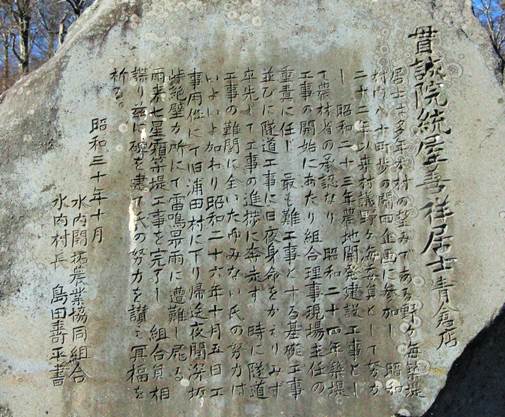 貫誠院統屋善祥居士
居士は多年村の望みである野々海堤
村内八十町歩の開田企画に参加し 昭和
二十二年以来村議野々海委員として努力
し 昭和二十三年農地開発建設工事とし
て農林省の承認なり 昭和二十四年築堤
工事の開始にあたり組合理事現場主任の
重責に任じ 最も難工事とする基礎工事
並びに隧道工事に日夜身命をかえりみず
率先して工事の進捗に
工事の難関に全いたゆみない氏の努力は
いよいよ加わり昭和二十六年十月五日工
事用件にて旧浦田村に下り帰途夜間深坂
峠絶壁カ所にて雷鳴暴雨に遭難し居る
雨来七星霜築堤工事を完了し 組合員相
謀り茲に碑を建て氏の努力を讃え冥福を
祈る。
昭和三十年十月
水内開拓農業協同組合
水内村長 島田壽平書